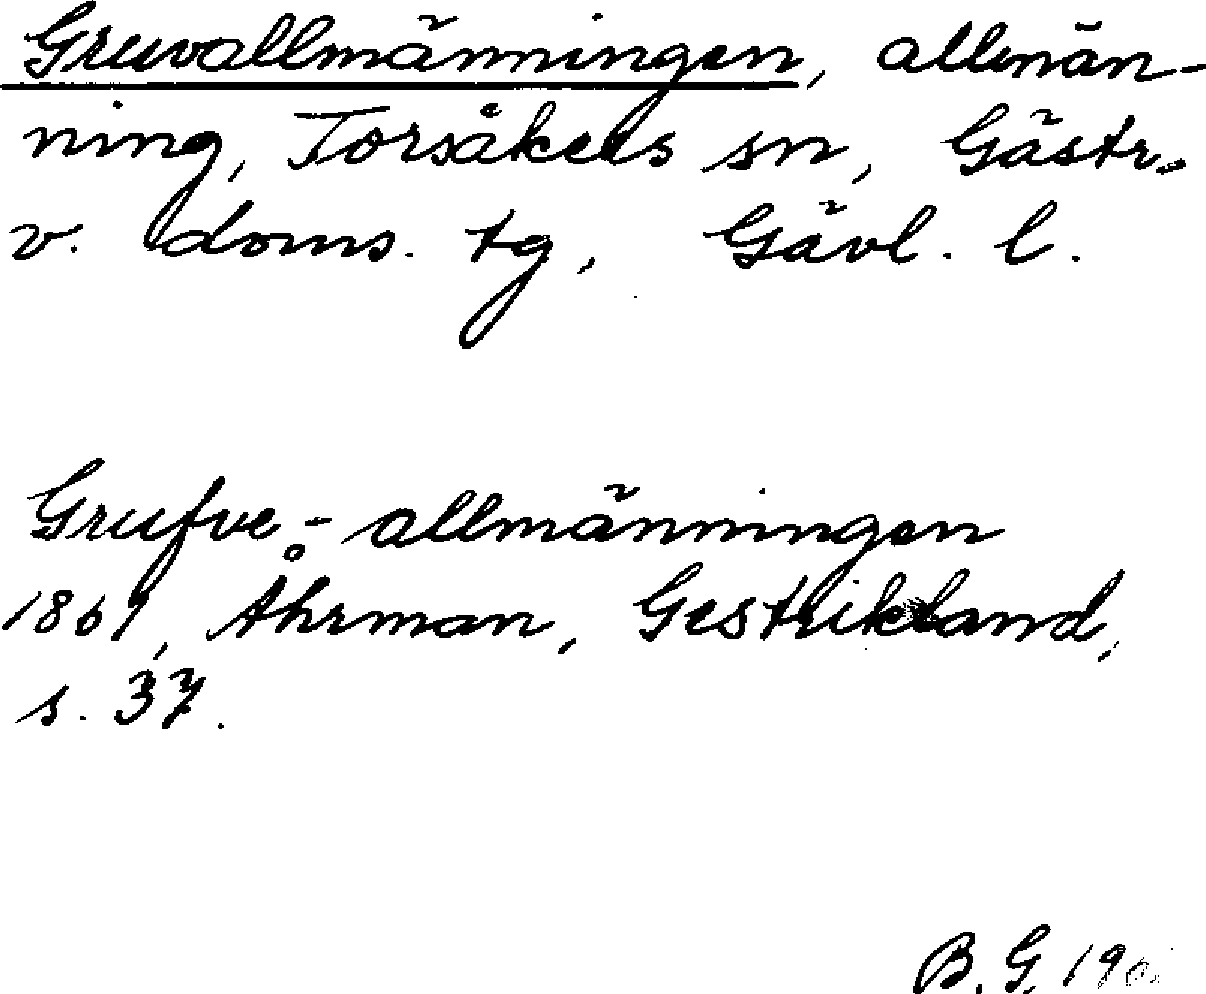 Gruvallmänningen, allmän-
ning, Torsåkers sn, Gästr.
v. doms. tg, Gävl. l.
Grufve-allmänningen
1861, Åhrman, Gestrikland,
s. 37.
B. G.